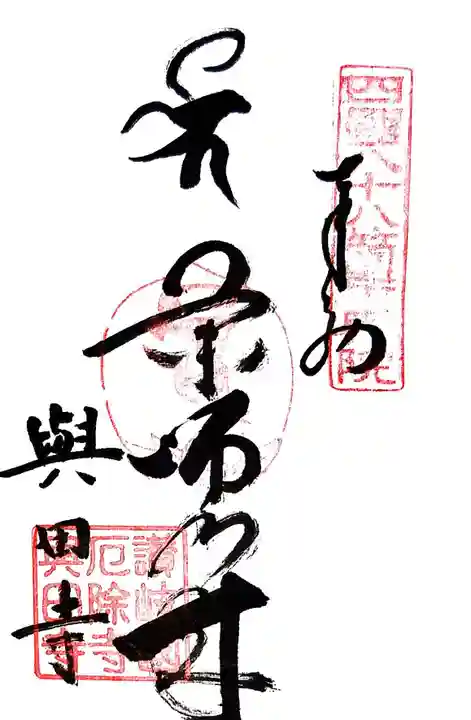 四國八十八箇所奥院
奉納
薬師如来
與田寺
讃岐國
厄除寺
與田寺